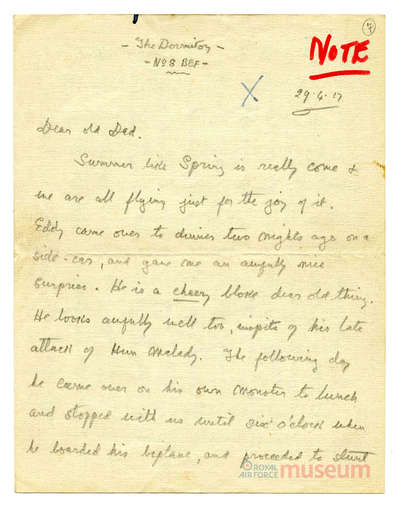 - The Dormitory
- No 8 BEF -
NOTE
X
29.4.17
Dear old Dad.
Summer like Spring is really come &
we are all flying just for the joy of it.
Eddy came over to dinner two nights ago on a
side-car, and gave me an awfully nice
surprise. He is a cheery bloke dear old thing.
He looks awfully well too, inspite of his late
attack of Hun Malady. The following day
he came over on his own Monster to lunch
and stopped with us until six o'clock when
he boarded his biplane, and proceeded to stunt
ROYAL
AIR FORCE museum